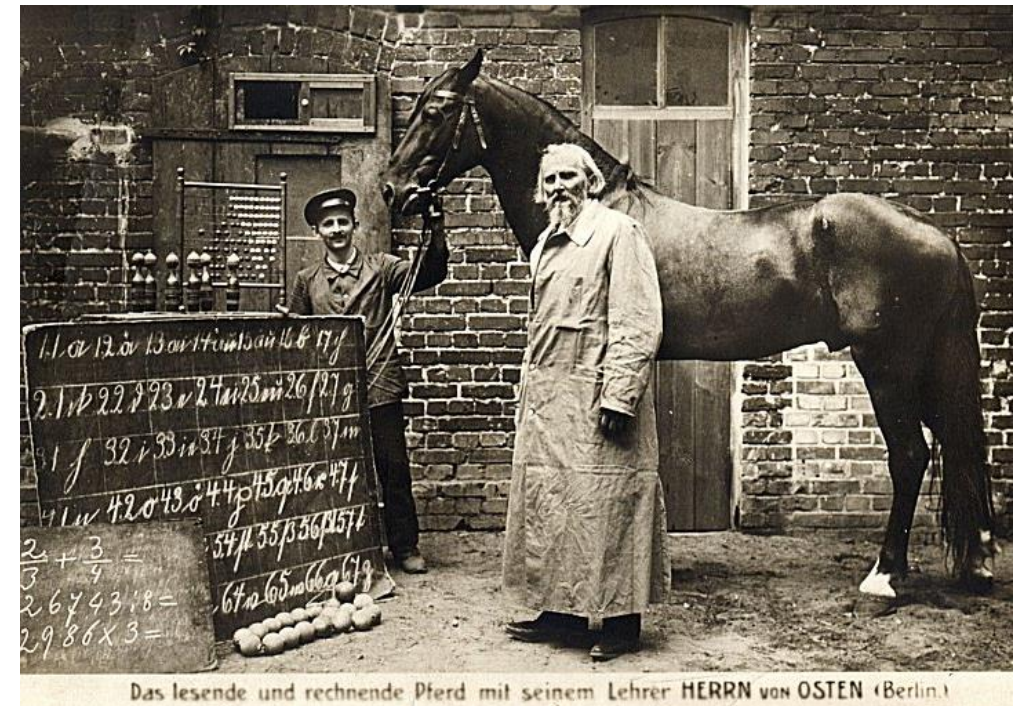 11 a 12 ä 13 au 14 16 b 17
21 22 d 23 e 24 ei 25 eu 26 f 27 g
31 h 32 i 33 ie 34 j 35 k 36 l 37 m
41 n 42 o 43 ö 44 p 45 q 46 r 47 s
54 55 ß 56 57 t
64 65 66 67 z
2/3 + 3/4 =
26743:8=
2986X3=
Das lesende und rechnende Pferd mit seinem Lehrer HERRN von OSTEN (Berlin.)